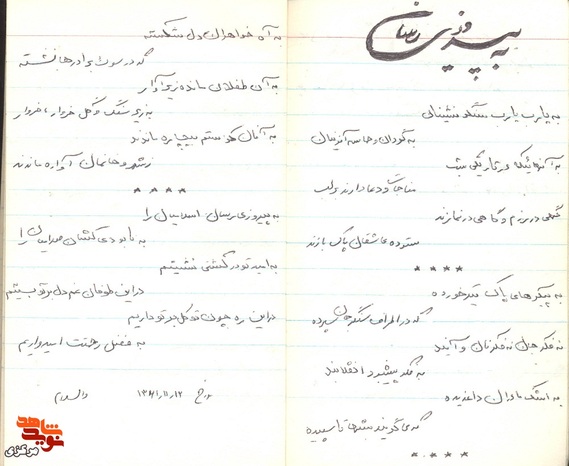 به پیروزی رسان
به یارب یارب سنگر نشینان
به گودان و حماسه آفرینان
به آنهائیکه در تاریکی شب
مناجات و دعا دارند بر لب
گهی در رزم و گاهی در نمازند
ستوده عاشقان پاک بازند
****
به پیکرهای پاک تیر خورده
که در اطراف سنگر جان سپرده
نه فکر جان نه فکر نان و آبند
به فکر پیشبرد انقلابند
به اشک مادران داغدیده
که می گویند شبها تا سپیده
****
به آه خواهران دل شکسته
که در سوگ برادرها نشسته
به آن طفلان مانده زیر آوار
به زیر سنگ و گل خروار، خروار
به آنان کز ستم بیچاره ماندند
ز شهر و خانمان آواره ماندند
****
به پیروزی رسان اسلامیان را
به نابودی کشان صدامیان را
به امید تو در کشتی نشستیم
در این طوفان غم دل بر تو بستیم
در این ره چون توکل بر تو داریم
به فضل رحمتت امیدواریم
مورخ ۱۳۶۱/۱۱/۱۲ والسلام
نوید شاهد
مرکزی